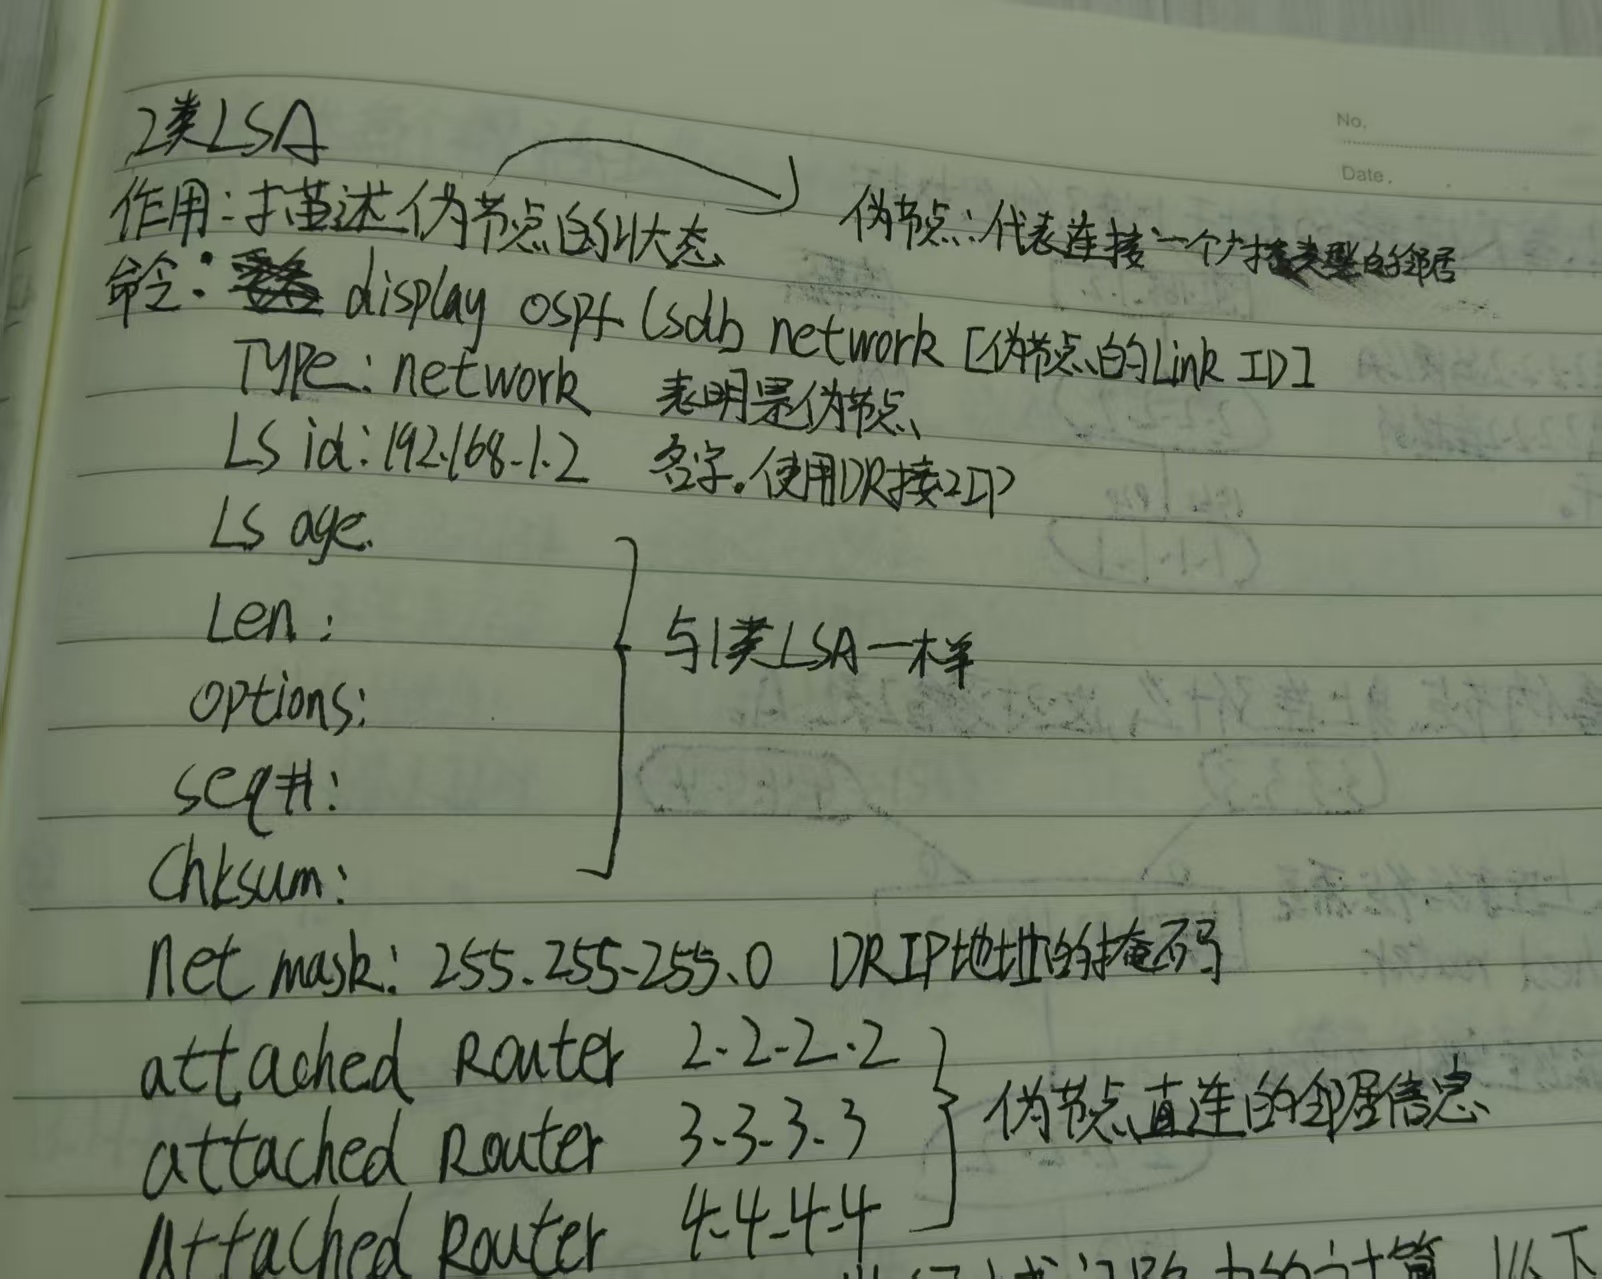 No.
Date.
2类LSA
作用:描述伪节点的状态
伪节点:代表连接一个广播类型的邻居
命令: display ospf lsdb network [伪节点的Link ID]
Type: network 表明是伪节点
LS id: 192.168.1.2 名字。使用DR接口IP
LS age.
Len:
options:
seq#:
Chksum:
与1类LSA一样
net mask: 255.255.255.0 DR IP地址的掩码
attached Router 2.2.2.2
attached Router 3.3.3.3
Attached Router 4.4.4.4
伪节点直连的邻居信息
的计算 以下